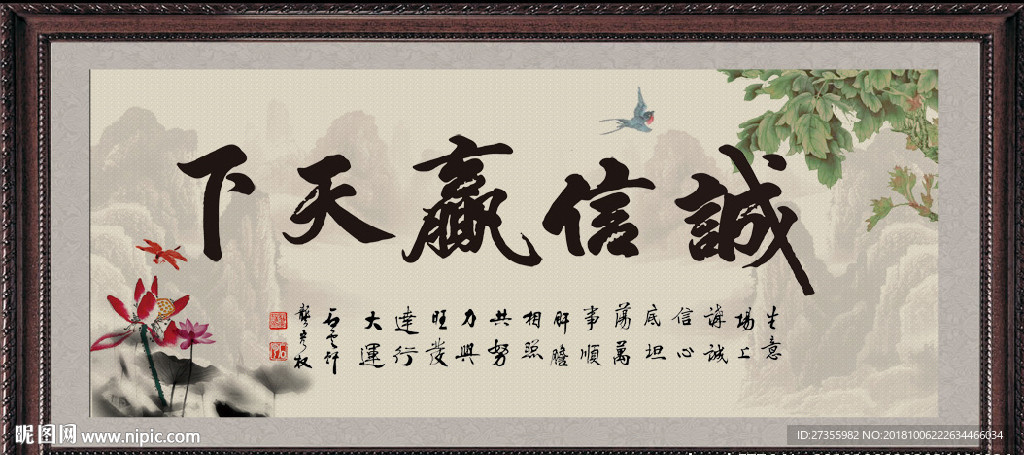 誠信贏天下
生意
場上
講誠
信心
底坦
蕩萬
事順
肝膽
相照
共努
力興
旺發
達行
大運
昵图网 www.nipic.com
ID:27355982 NO:20181006222634466034